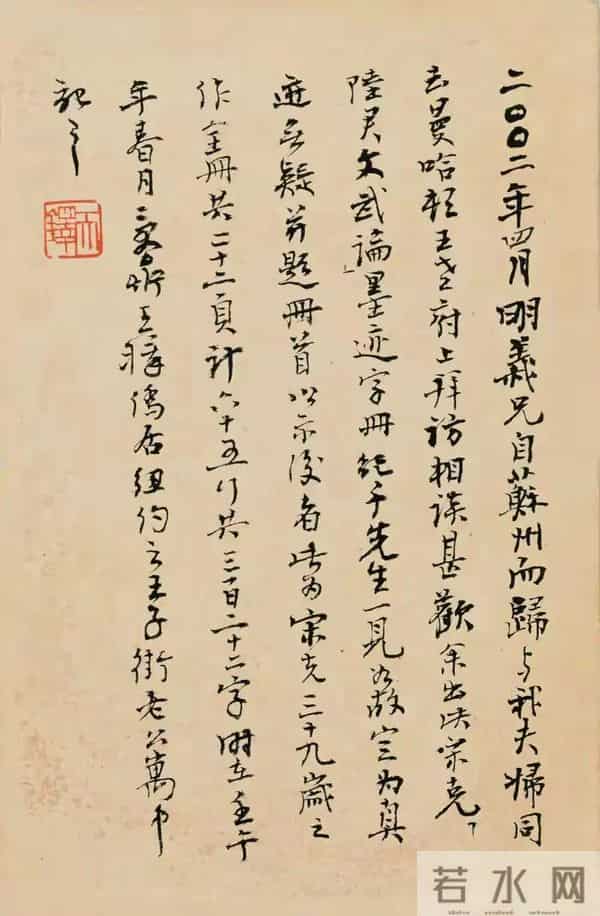 二〇〇二年四月明義兄自蘇州而歸与我夫婦同
去曼哈頓王老府上拜訪相談甚歡余出決宋克「
陸君文武論」墨迹字冊紀千先生一見如故定为真
迹無疑并題冊首以示後者此为宋克三十九歲之
作全冊共二十二頁計六十五行共三百二十二字時在壬午
年春月 王 僑居紐約之王子街老公寓中
記之
若水网